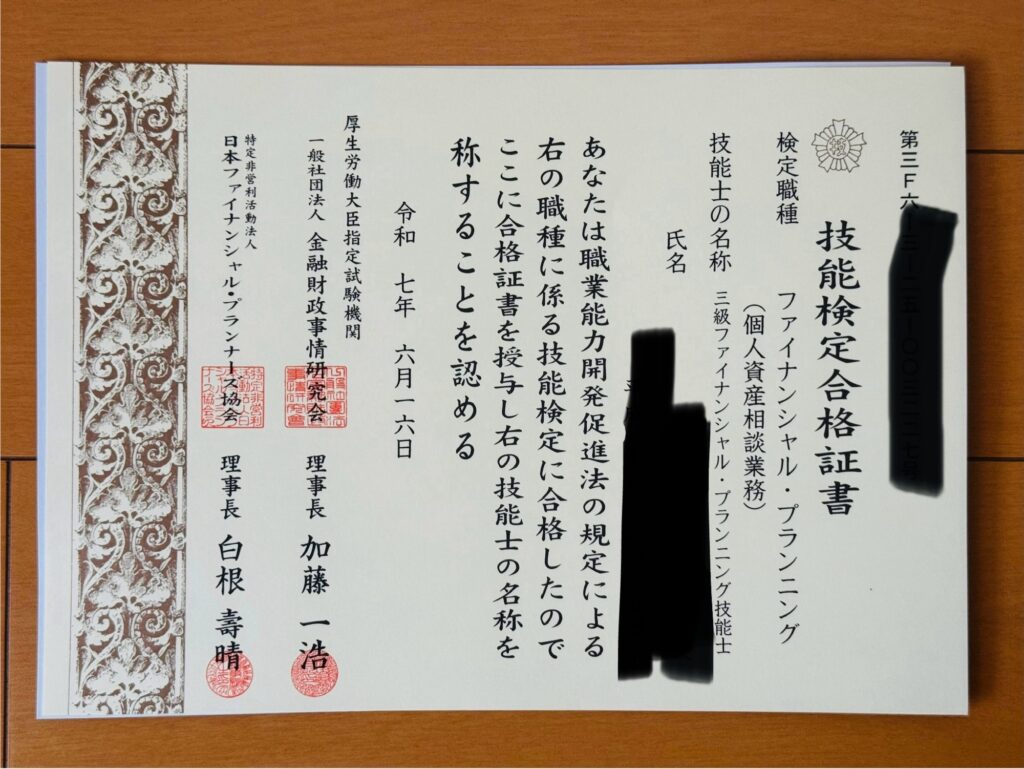 第三F六
技能検定合格証書
検定職種　ファイナンシャル・プランニング
（個人資産相談業務）
技能士の名称　三級ファイナンシャル・プランニング技能士
氏名
あなたは職業能力開発促進法の規定による
右の職種に係る技能検定に合格したので
ここに合格証書を授与し右の技能士の名称を
称することを認める
令和　七年　六月一六日
厚生労働大臣指定試験機関
一般社団法人　金融財政事情研究会　理事長　加藤　一浩
特定非営利活動法人
日本ファイナンシャル・プランナーズ協会　理事長　白根　壽晴